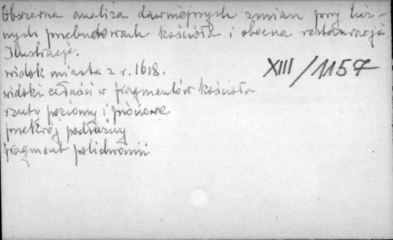 Obszerna analiza dawniejszych zmian przy licz-
nych przebudowach kościoła i obecna restauracja
Ilustracje.
widok miasta z r. 1618.
XIII/1157
widoki całości w fragmentów kościoła
rzuty poziomy i pionowe
przekrój podłużny
fragment polichromii